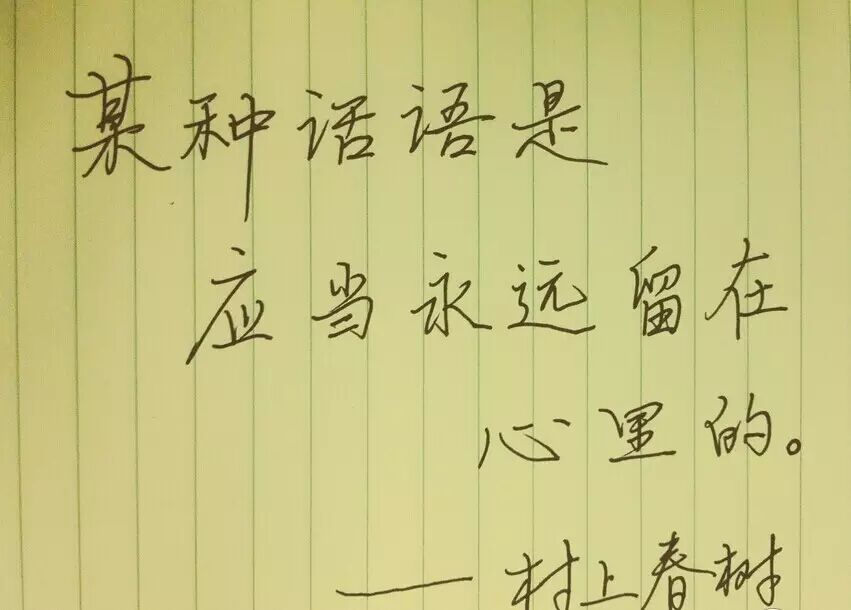 某种话语是
应当永远留在
心里的。
——村上春树